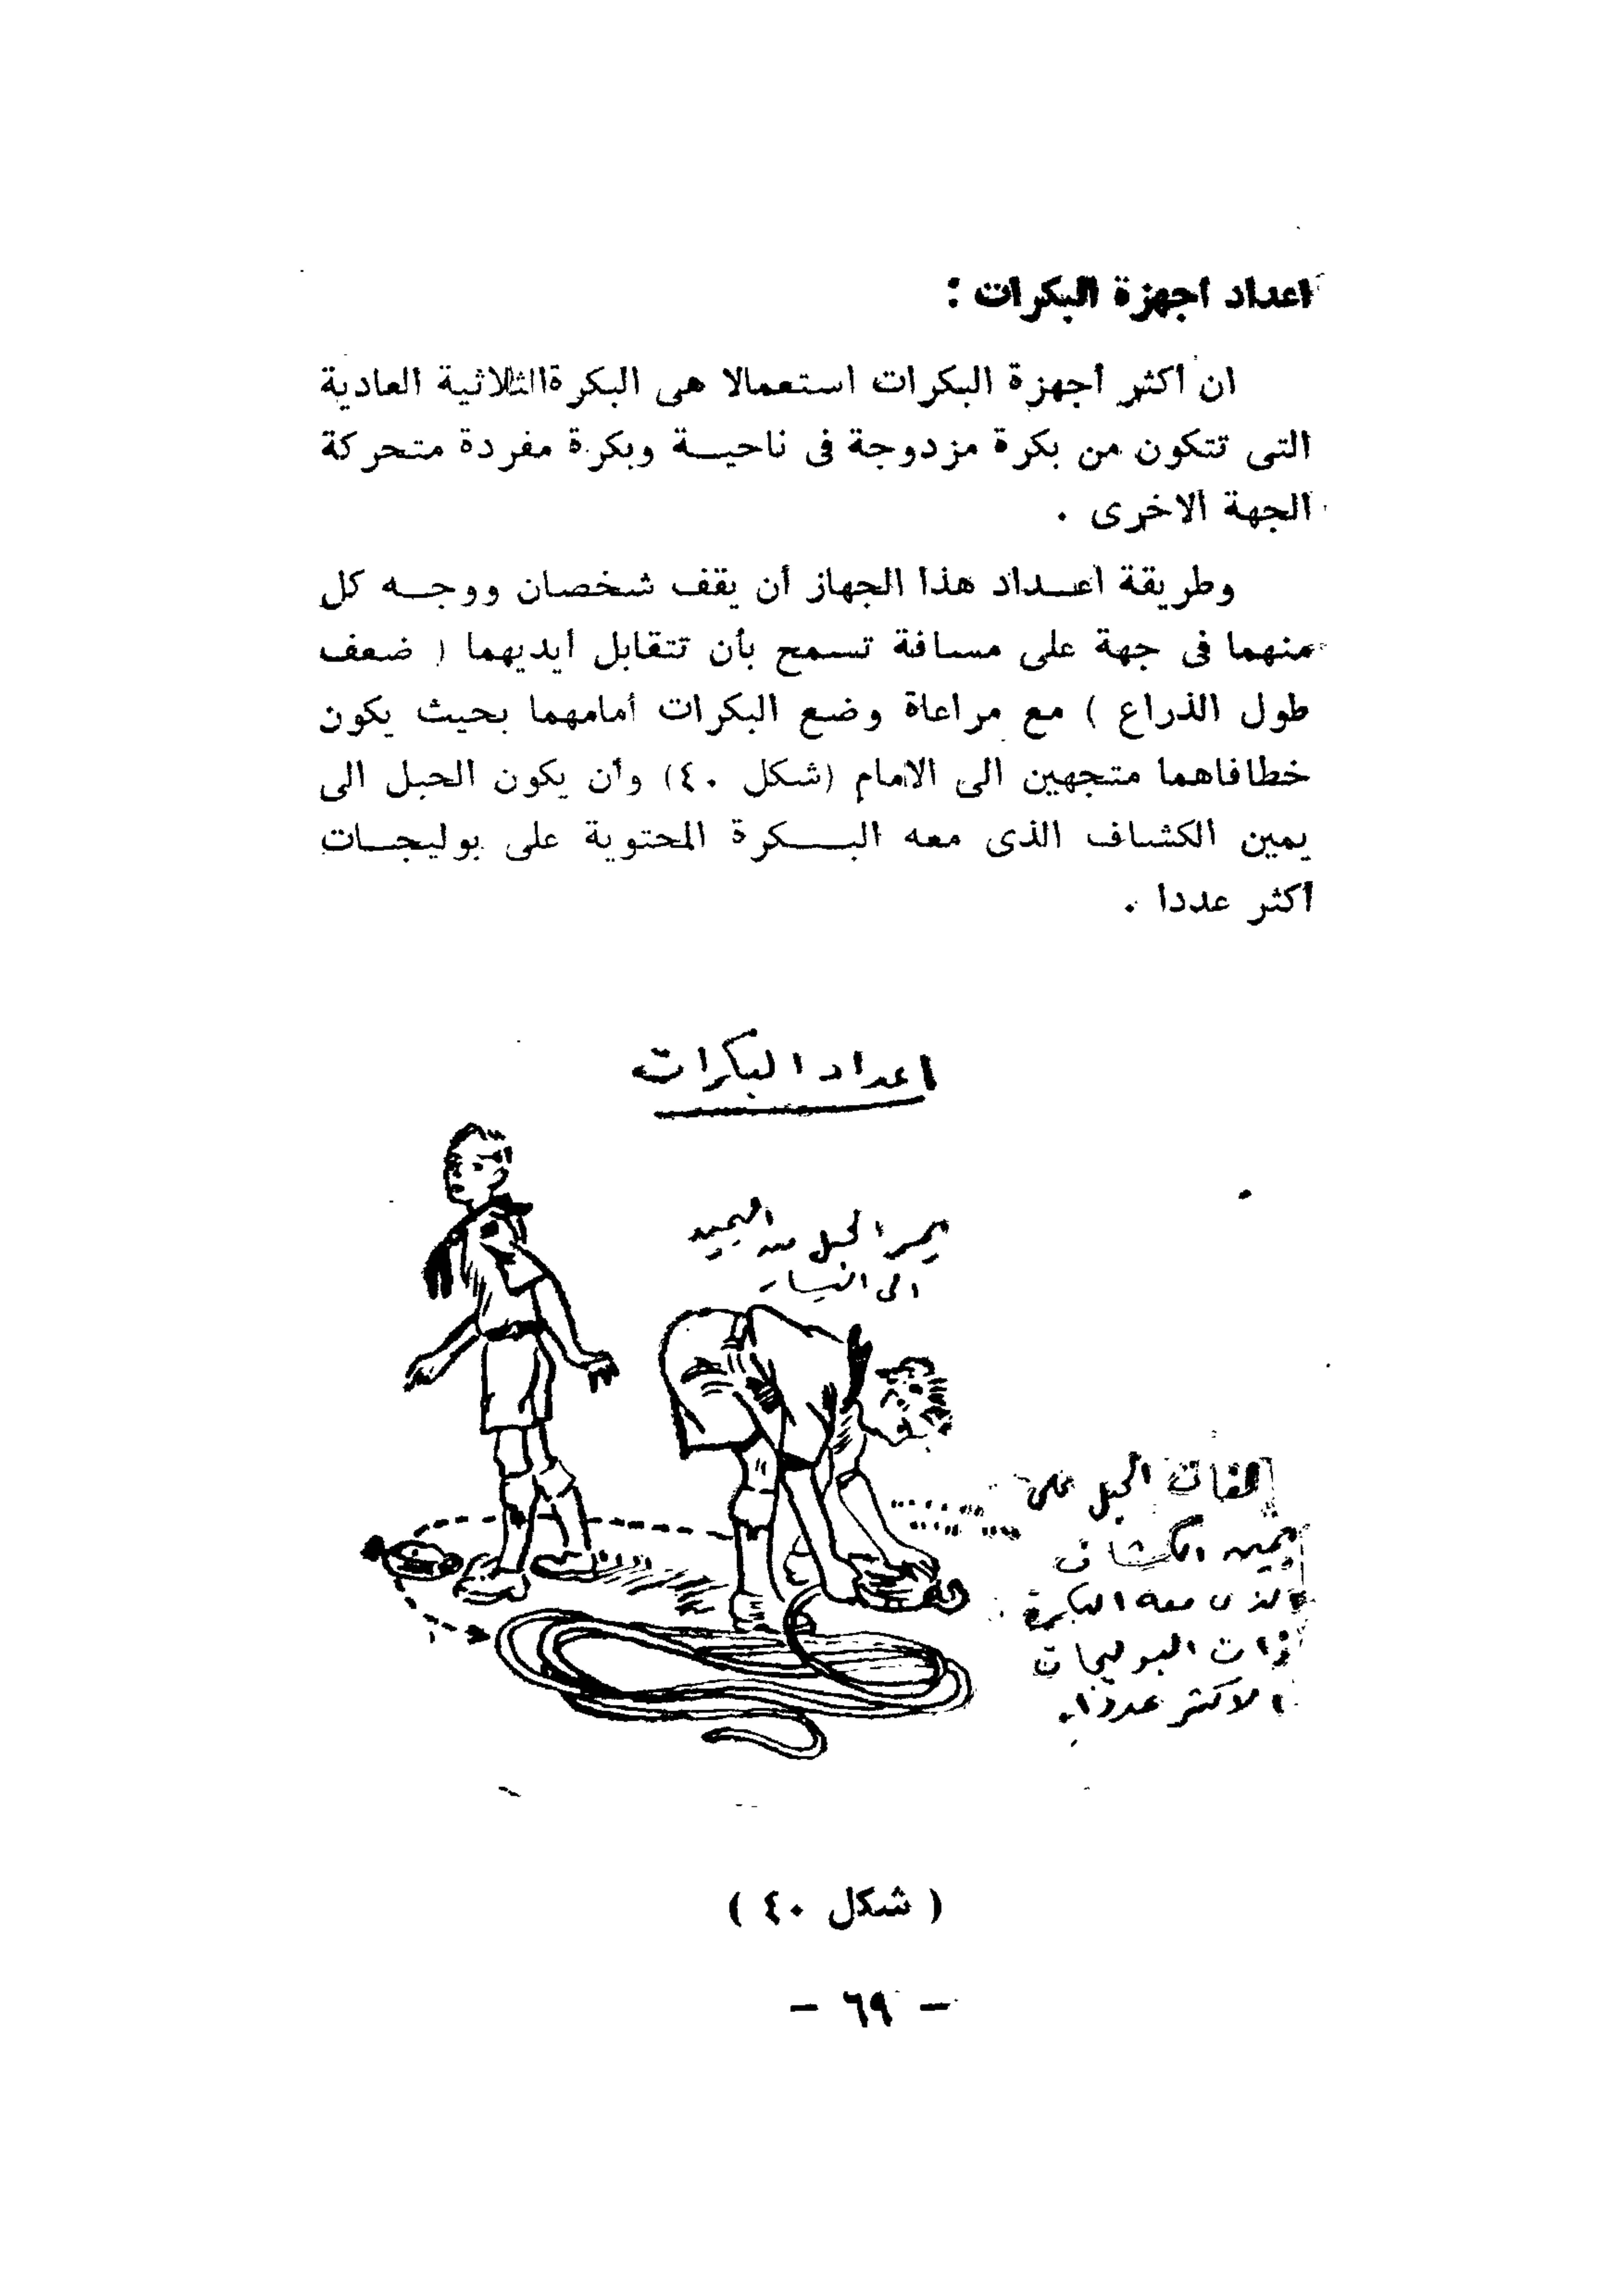 اعداد اجهزة البكرات :
ان أكثر أجهزة البكرات استعمالا هى البكرة الثلاثية العادية
التى تتكون من بكرة مزدوجة فى ناحيــة وبكرة مفردة متحركة
الجهة الاخرى .
وطريقة اعــداد هذا الجهاز أن يقف شخصان ووجــه كل
منهما فى جهة على مسافة تسمح بأن تتقابل أيديهما ( ضعف
طول الذراع ) مع مراعاة وضع البكرات أمامهما بحيث يكون
خطافاهما متجهين الى الامام (شكل ٤٠) وأن يكون الحبل الى
يمين الكشاف الذى معه البــــكرة المحتوية على بوليجــات
أكثر عددا .
اعداد البكرات
يمر الحبل من اليمين
الى اليسار
لفات الحبل على
يمين الكشاف
الذى معه البكرة
ذات البوليجات
الاكثر عددا .
( شكل ٤٠ )
– ٦٩ –